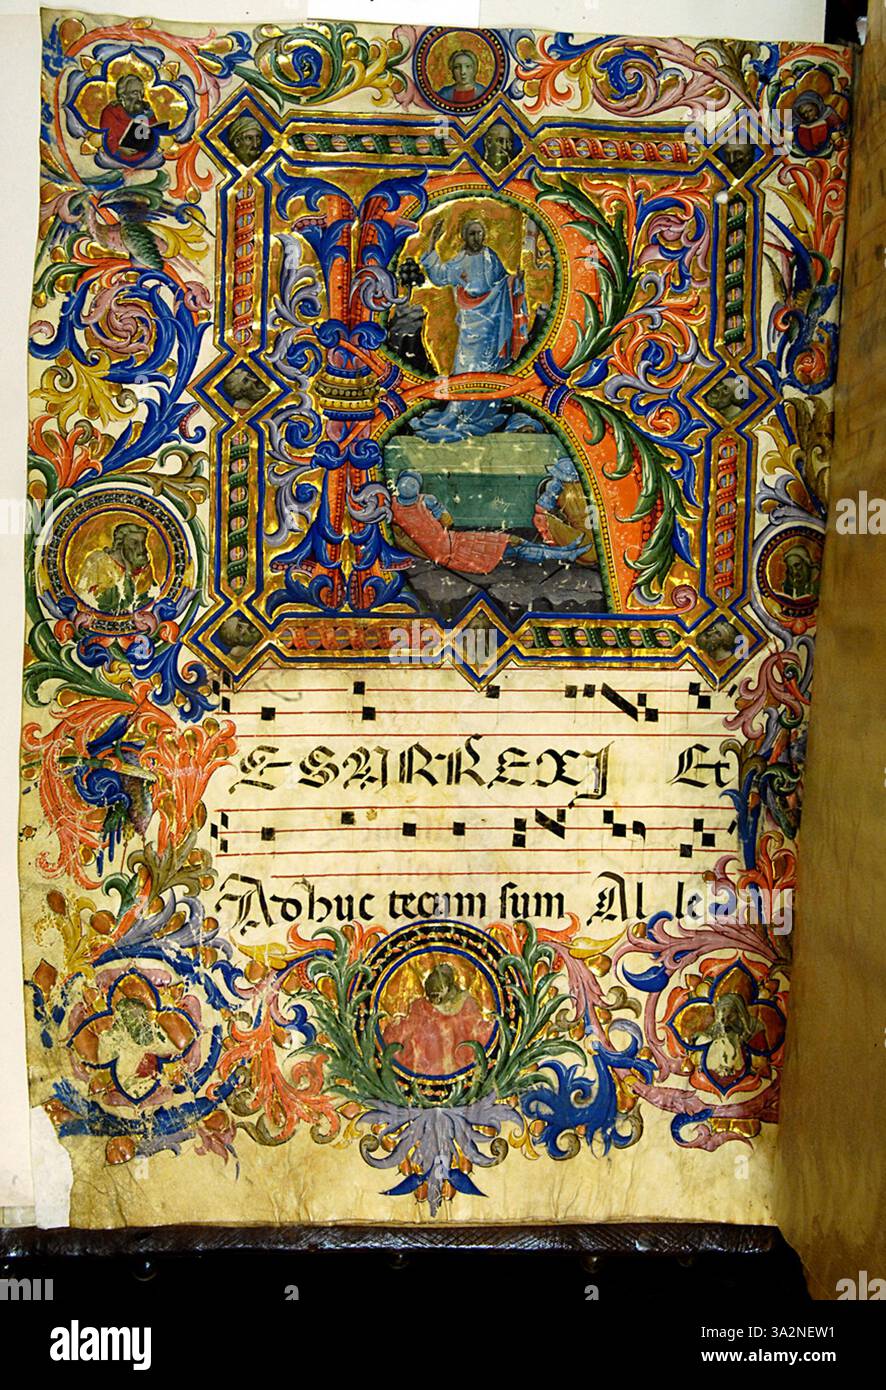 R
ESARREXJ Et
Adhuc tecum sum Al le
alamy
Image ID: 3A2NEW1
www.alamy.com